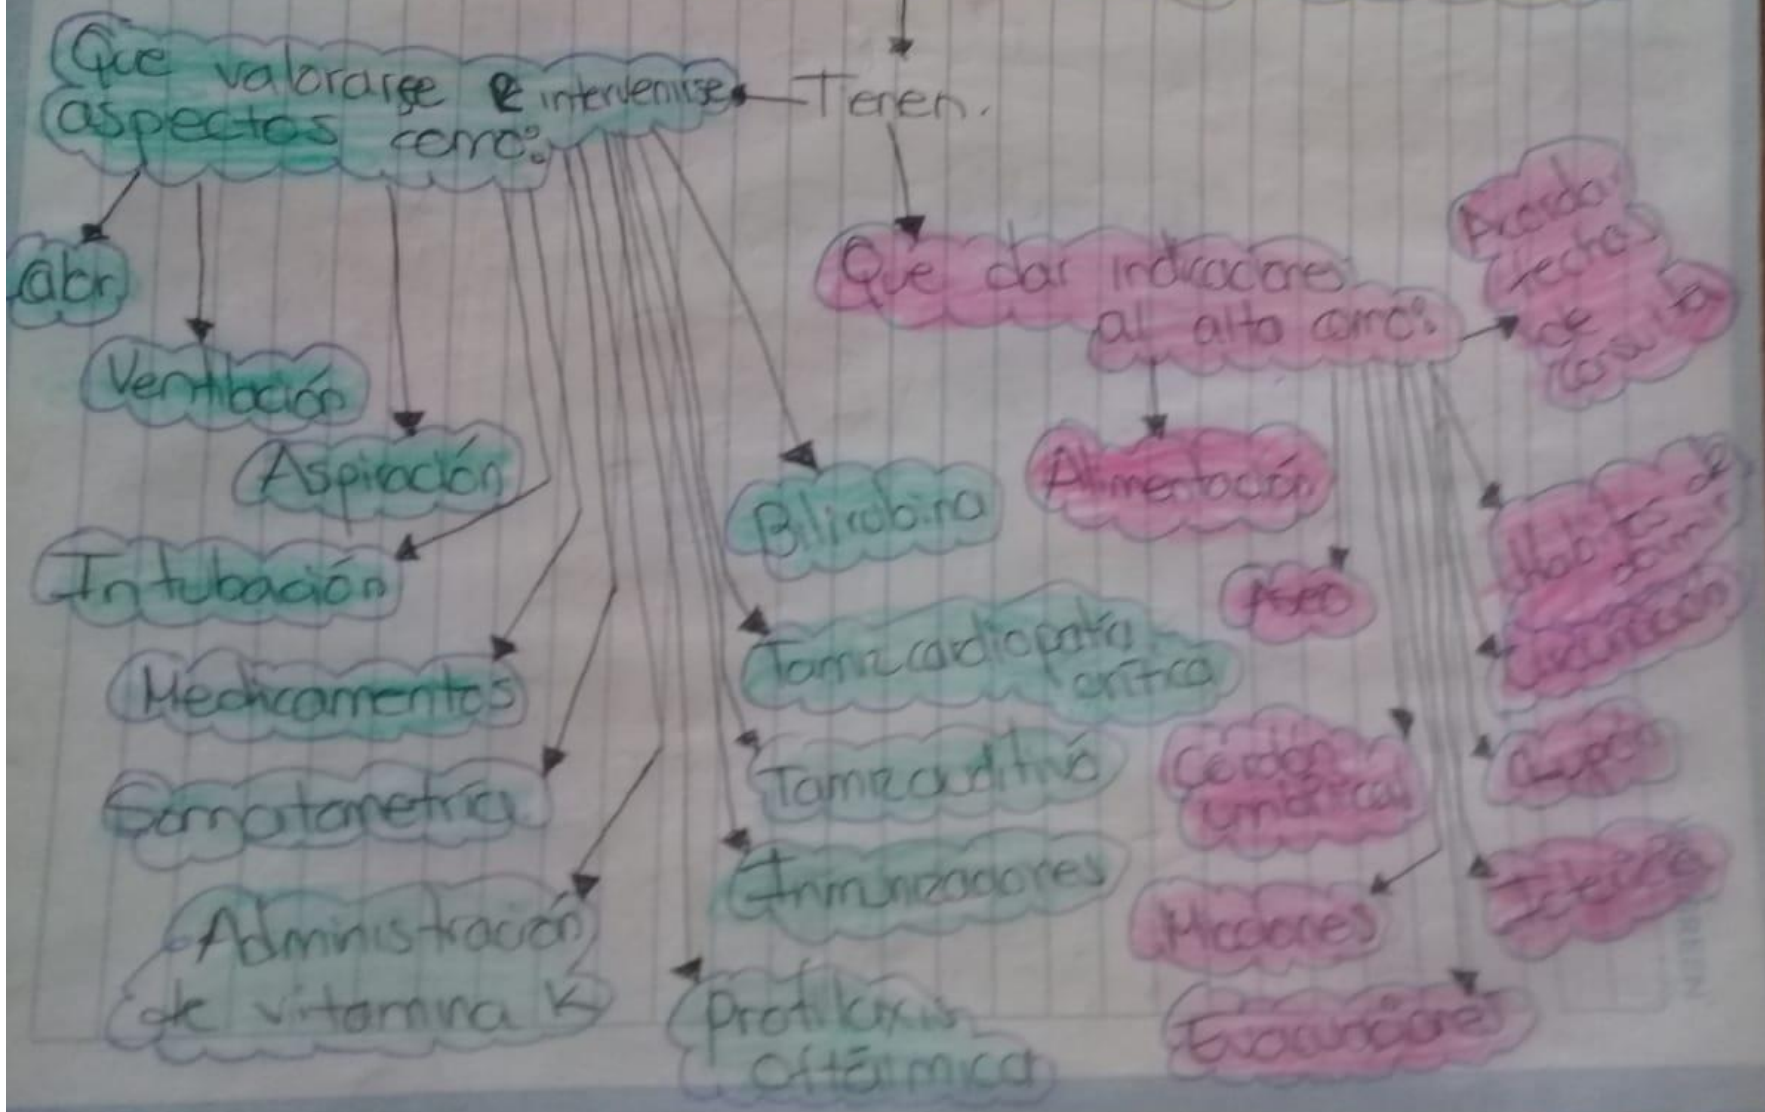 Tienen.
Que valorarse e intervenirse
aspectos como:
abr
Ventilación
Aspiración
Intubación
Medicamentos
Somatometría
Administración
de vitamina K
Bilirubina
Tamiz cardiopatía
crítica
Tamiz auditivo
Inmunizaciones
Profilaxis
oftálmica
Que dar indicaciones
al alta como:
Acordar
fechas
de
consulta
Alimentación
Aseo
Cordón
umbilical
Micciones
Evacuaciones
Habitos de
dormir